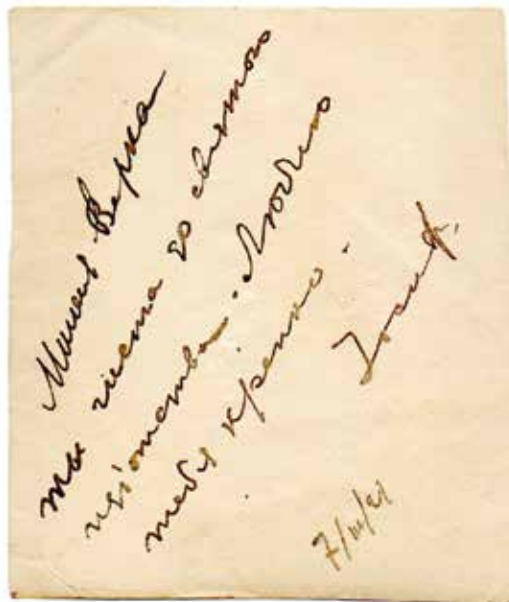 Милая Верка
ты чиста до святого
идіотства. Люблю
тебя крепко.
7/III/21